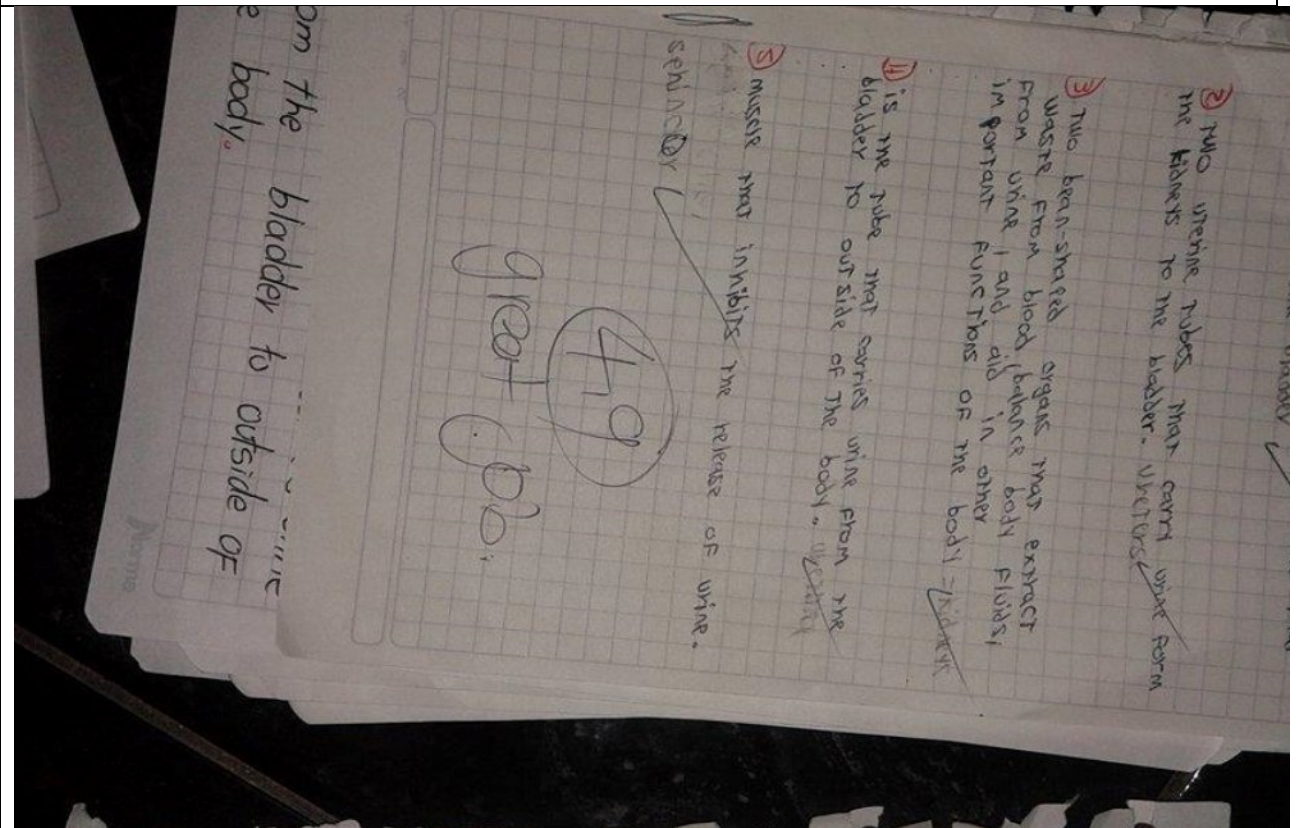 ② Two uterine tubes that carry urine form
the kidneys to the bladder. Ureters
③ Two bean-shaped organs that extract
waste from blood, balance body fluids,
from urine, and aid in other
important functions of the body = kidneys
④ is the tube that carries urine from the
bladder to outside of the body.
⑤ muscle that inhibits the release of urine.
4.9
great Job!
om the bladder to outside of
e body.
Norma